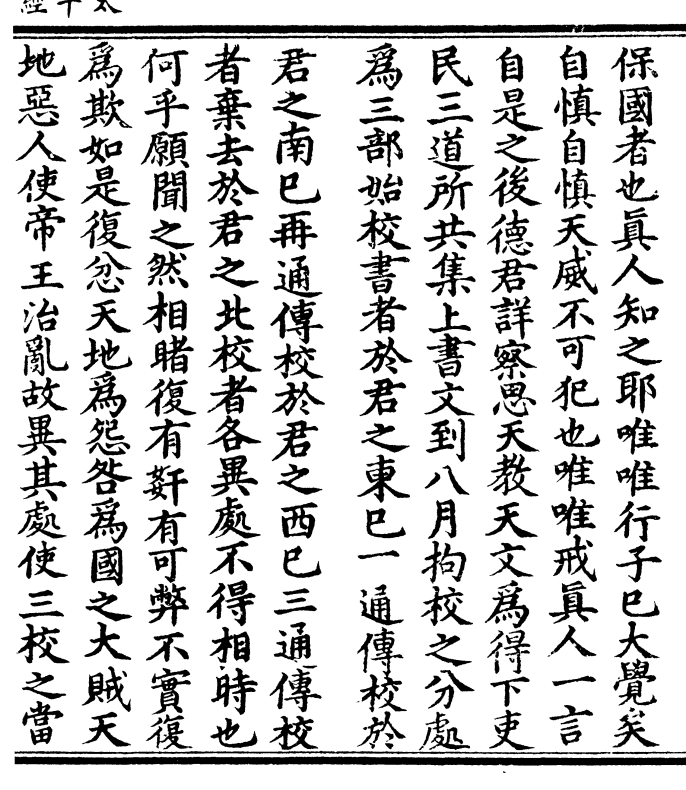 保國者也眞人知之耶唯唯行子已大覺矣
自慎自慎天威不可犯也唯唯戒眞人一言
自是之後德君詳察思天教天文爲得下吏
民三道所共集上書文到八月拘校之分處
爲三部始校書者於君之東已一通傳校於
君之南已再通傳校於君之西已三通傳校
者棄去於君之北校者各異處不得相時也
何乎願聞之然相睹復有姧有可弊不實復
爲欺如是復忿天地爲怨咎爲國之大賊天
地惡人使帝王治亂故異其處使三校之當